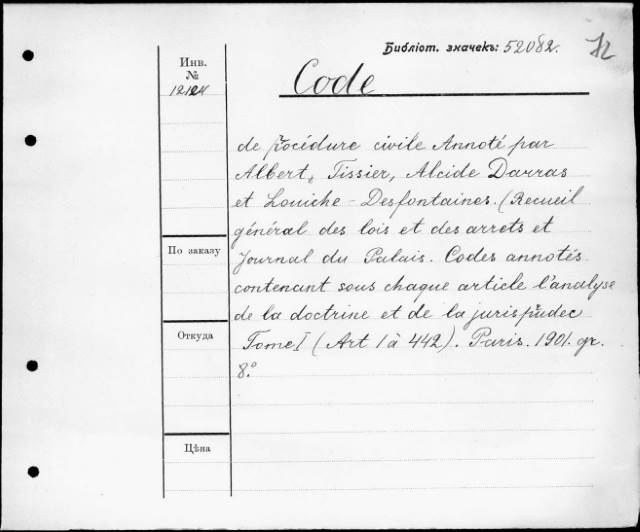 Библіот. значекъ: 52082.
Инв.
№
Code
de procédure civile Annoté par
Albert, Tissier, Alcide Darras
et Louiche-Desfontaines. (Recueil
général des lois et des arrets et
Journal du Palais. Codes annotés
contenant sous chaque article l'analyse
de la doctrine et de la jurisprudec
Tome I (Art 1 à 442). Paris. 1901. gr.
8.°
По заказу
Откуда
Цѣна